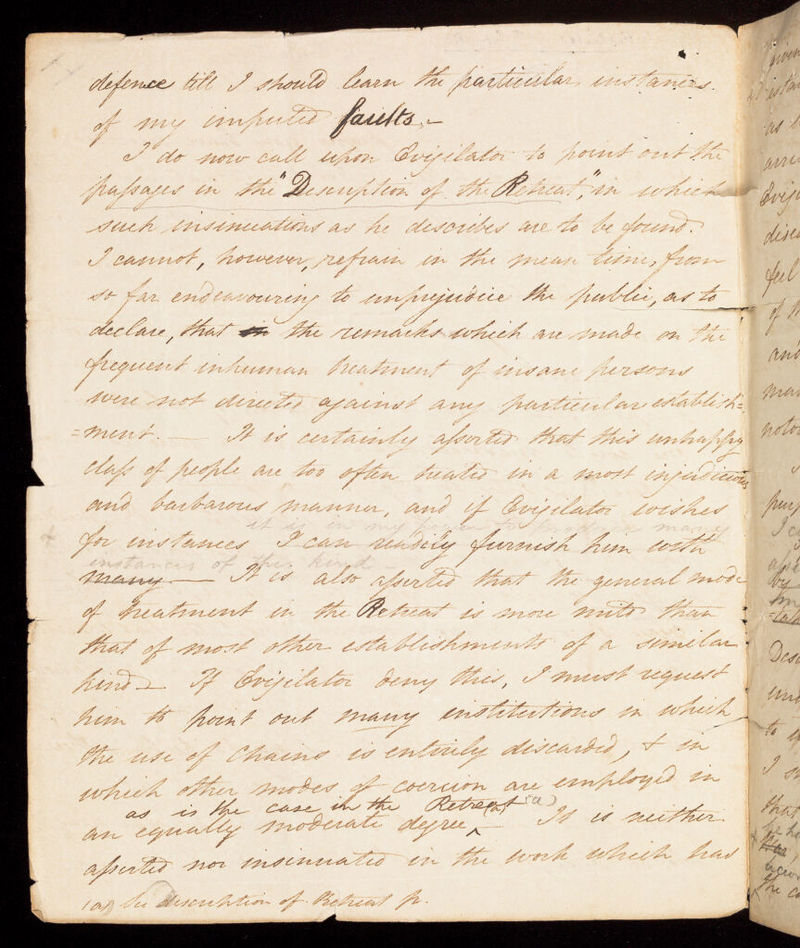 defence till I should learn the particular instances
of my imputed faults.–
I do now call upon Evigilator to point out the
passages in the "Description of the Retreat," in which
such insinuations as he describes are to be found.
I cannot, however, refrain in the mean time, from
so far endeavouring to unprejudice the public, as to
declare, that in the remarks which are made on the
frequent inhuman treatment of insane persons
were not directed against any particular establish=
=ment. — It is certainly asserted that this unhappy
class of people are too often treated in a most injudicious
and barbarous manner, and if Evigilator wishes
it is in my power to produce many
for instances I can readily furnish him with
instances of this kind –
many — It is also asserted that the general mode
of treatment in the Retreat is more mild than
that of most other establishments of a similar
kind – If Evigilator deny this, I must request
him to point out many institutions in which
the use of Chains is entirely discarded, & in
which other modes of coercion are employed in
as is the case in the Retreat (a)
an equally moderate degree ^ – It is neither
asserted nor insinuated in the work which has
(a) See description of Retreat p.